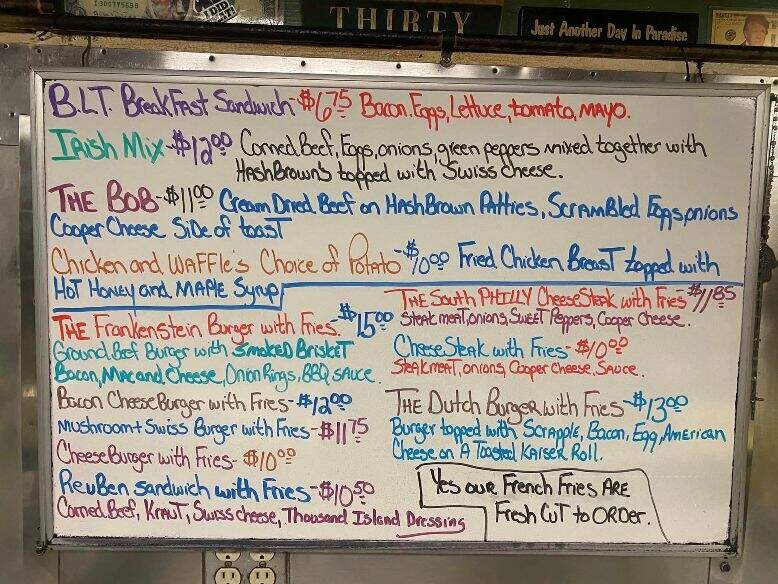 1000795698
I DID THAT!
THIRTY
Just Another Day In Paradise
B.L.T. BreakFast Sandwich-$6.75 Bacon, Eggs, Lettuce, tomato, MAYO.
IRish Mix-$12.00 Corned Beef, Eggs, onions, green peppers mixed together with
HashBrown's topped with Swiss cheese.
THE BOB-$11.00 Cream Dried Beef on HashBrown Patties, Scrambled Eggs, onions
Cooper Cheese Side of toast
Chicken and WAFFle's Choice of Potato-$10.00 Fried Chicken Breast topped with
Hot Honey and MAPle Syrup
THE Frankenstein Burger with Fries.-$15.00
Ground Beef Burger with SMOKED BrisKeT
Bacon, Mac and Cheese, Onion Rings, BBQ sauce.
Bacon CheeseBurger with Fries-$12.00
Mushroom + Swiss Burger with Fries-$11.75
CheeseBurger with Fries-$10.00
ReuBen sandwich with Fries-$10.50
Corned Beef, KRAUT, Swiss cheese, Thousand Island Dressing
THE South PHILLY CheeseSteak with Fries-$11.85
Steak meat, onions, Sweet Peppers, Cooper Cheese.
Cheese Steak with Fries-$10.00
Steak meat, onions, Cooper cheese, Sauce.
THE Dutch Burger with Fries-$13.00
Burger topped with Scrapple, Bacon, Egg, American
Cheese on A Toasted Kaiser Roll.
Yes our French Fries ARE
Fresh CuT to ORDer.